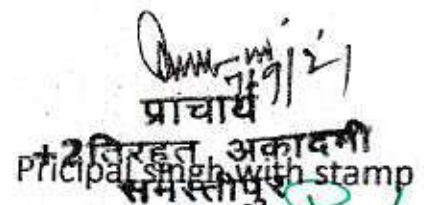 7/9/21
प्राचार्य
+2 तिरहुत अकादमी
Pricipal singh with stamp
समस्तीपुर